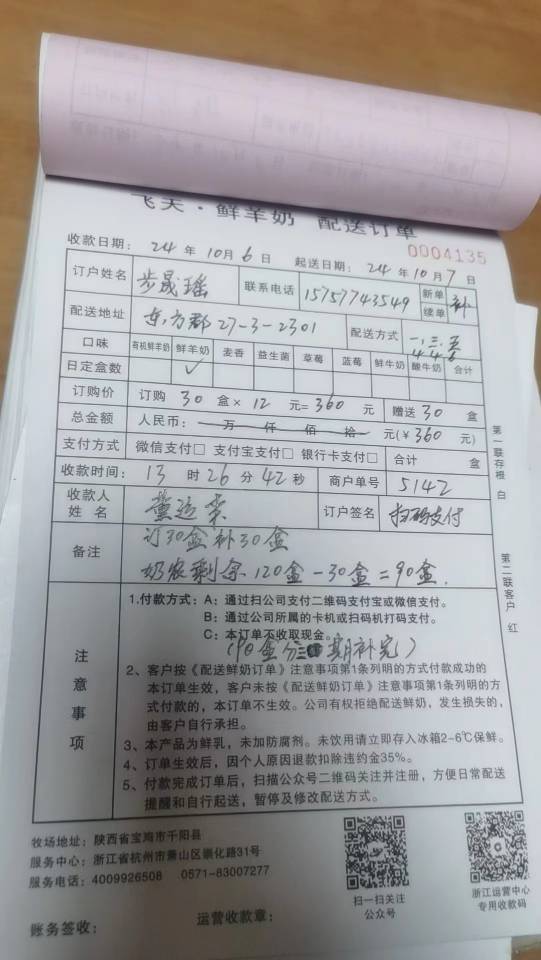 飞天·鲜羊奶 配送订单
0004135
收款日期: 24 年 10 月 6 日 起送日期: 24 年 10 月 7 日
订户姓名 步晟瑶 联系电话 15757743549 新单 续单 补
配送地址 东方郡 27-3-2301 配送方式 一,三,五 4 4 6
口味 有机鲜羊奶 鲜羊奶 麦香 益生菌 草莓 蓝莓 鲜牛奶 酸牛奶 合计
日定盒数 ✓
订购价 订购 30 盒× 12 元=360 元 赠送 30 盒
总金额 人民币: 万 仟 佰 拾 元(¥ 360 元)
支付方式 微信支付□ 支付宝支付□ 银行卡支付□ 合计 盒
收款时间: 13 时 26 分 42 秒 商户单号 5142
收款人姓名 董运荣 订户签名 扫码支付
备注 订30盒补30盒
奶农剩余 120盒-30盒=90盒.
(90盒分三期补完)
注意事项
1.付款方式: A: 通过扫公司支付二维码支付宝或微信支付。
B: 通过公司所属的卡机或扫码机打码支付。
C: 本订单不收取现金。
2、客户按《配送鲜奶订单》注意事项第1条列明的方式付款成功的
本订单生效，客户未按《配送鲜奶订单》注意事项第1条列明的方
式付款的，本订单不生效。公司有权拒绝配送鲜奶，发生损失的，
由客户自行承担。
3、本产品为鲜乳，未加防腐剂。未饮用请立即存入冰箱2-6℃保鲜。
4、订单生效后，因个人原因退款扣除违约金35%。
5、付款完成订单后，扫描公众号二维码关注并注册，方便日常配送
提醒和自行起送，暂停及修改配送方式。
第一联存根 白
第二联客户 红
牧场地址: 陕西省宝鸡市千阳县
服务中心: 浙江省杭州市萧山区崇化路31号
服务电话: 4009926508 0571-83007277
扫一扫关注
公众号
浙江运营中心
专用收款码
账务签收: 运营收款章: